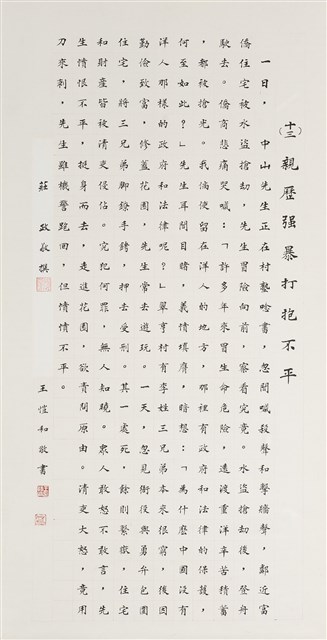 (十三)親歷强暴打抱不平
一日,中山先生正在村塾唸書,忽聞喊殺聲和擊牆聲,鄰近富
僑住宅被水盜搶劫,先生冒險向前,察看究竟。水盜搶劫後,登舟
駛去。僑商悲痛哭喊:「許多年來冒生命危險,遠渡重洋辛苦積蓄
,都被搶光。我倘使留在洋人的地方,那裡有政府和法律的保護,
何至如此?」先生耳聞目睹,義憤填膺,暗想:「為什麼中國沒有
洋人那樣的政府和法律呢?」翠亨村有李姓三兄弟本來很窮,後因
勤儉致富,修蓋花園,先生常去遊玩。一天,忽見衙役與勇弁包圍
住宅,將三兄弟腳鐐手銬,押去受刑。其一處死,餘則繫獄,住宅
和財產皆被清吏侵佔。究犯何罪,無人知曉。衆人敢怒不敢言,先
生憤恨不平,挺身而去,走進花園,欲責問原由。清吏大怒,竟用
刀來刺,先生雖機警跑回,但憤憤不平。
莊政敬撰
王愷和敬書